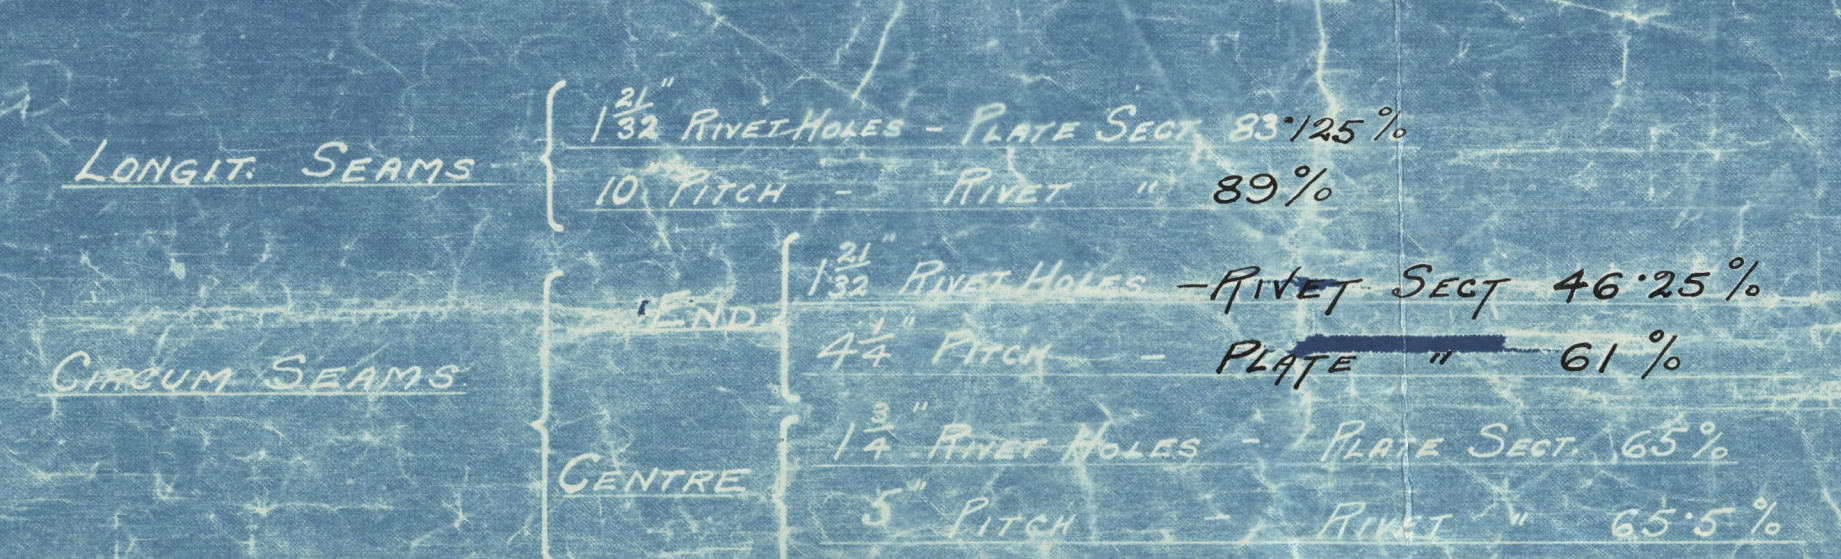 LONGIT. SEAMS
1 21/32" RIVET HOLES - PLATE SECT. 83·125%
10 PITCH - RIVET " 89%
CIRCUM SEAMS
END
1 21/32" RIVET HOLES - RIVET SECT 46·25%
4 1/4" PITCH - PLATE " 61%
CENTRE
1 3/4" RIVET HOLES - PLATE SECT. 65%
5" PITCH - RIVET " 65·5%